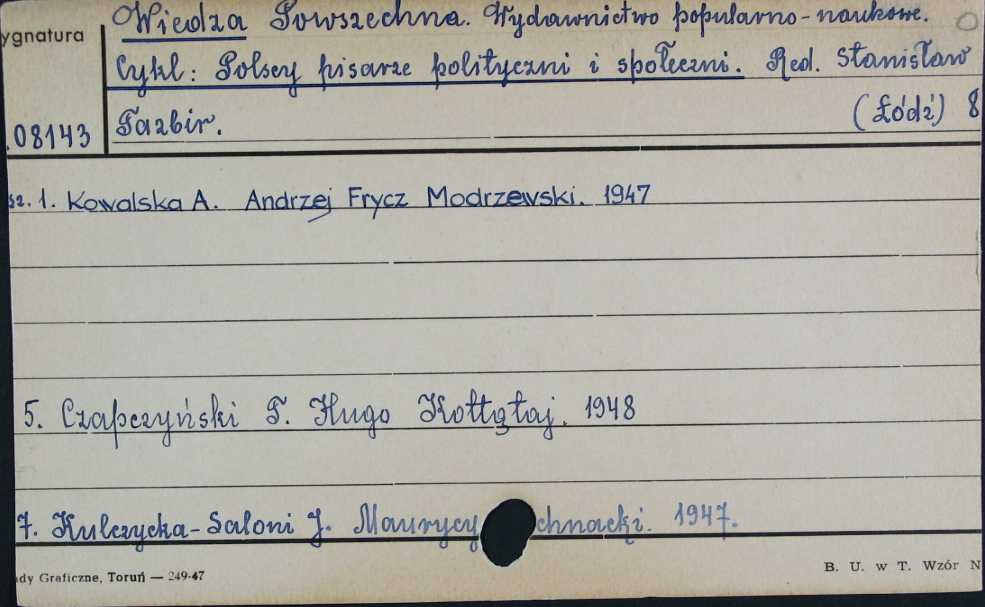 Wiedza Powszechna. Wydawnictwo popularno-naukowe.
ygnatura
Cykl: Polscy pisarze polityczni i społeczni. Red. Stanisław
Tazbir. (Łódź) 8
08143
sz. 1. Kowalska A. Andrzej Frycz Modrzewski. 1947
5. Czapczyński T. Hugo Kołłątaj. 1948
7. Kulczycka-Saloni J. Maurycy chnacki. 1947.
dy Graficzne, Toruń — 249-47
B. U. w T. Wzór N